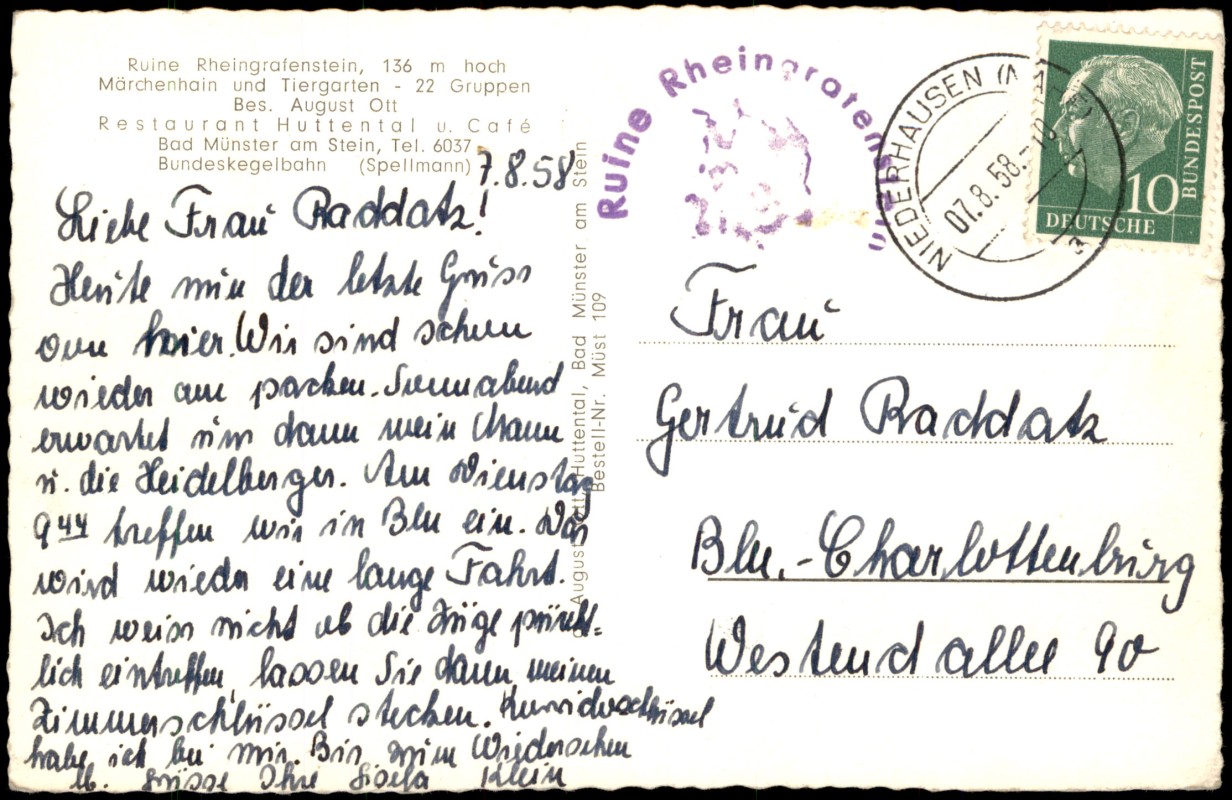 Ruine Rheingrafenstein, 136 m hoch
Märchenhain und Tiergarten - 22 Gruppen
Bes. August Ott
Restaurant Huttental u. Café
Bad Münster am Stein, Tel. 6037
Bundeskegelbahn (Spellmann)
7.8.58
Liebe Frau Raddatz!
Heute nun der letzte Gruss
von hier. Wir sind schon
wieder am packen. Sonnabend
erwartet uns dann mein Mann
u. die Heidelberger. Am Dienstag
9 44 treffen wir in Bln ein. Das
wird wieder eine lange Fahrt.
Ich weiss nicht ob die Züge pünkt=
lich eintreffen, lassen Sie dann meinen
Zimmerschlüssel stecken. Korridorschlüssel
habe ich bei mir. Bis zum Wiedersehen
u. Grüsse Ihre Gisela Klein
August Ott, Huttental, Bad Münster am Stein
Bestell-Nr. Müst 109
Ruine Rheingrafen
NIEDERHAUSEN (NAHE)
07.8.58.-10
a
BUNDESPOST
10
DEUTSCHE
Frau
Gertrud Raddatz
Bln.-Charlottenburg
Westendallee 90